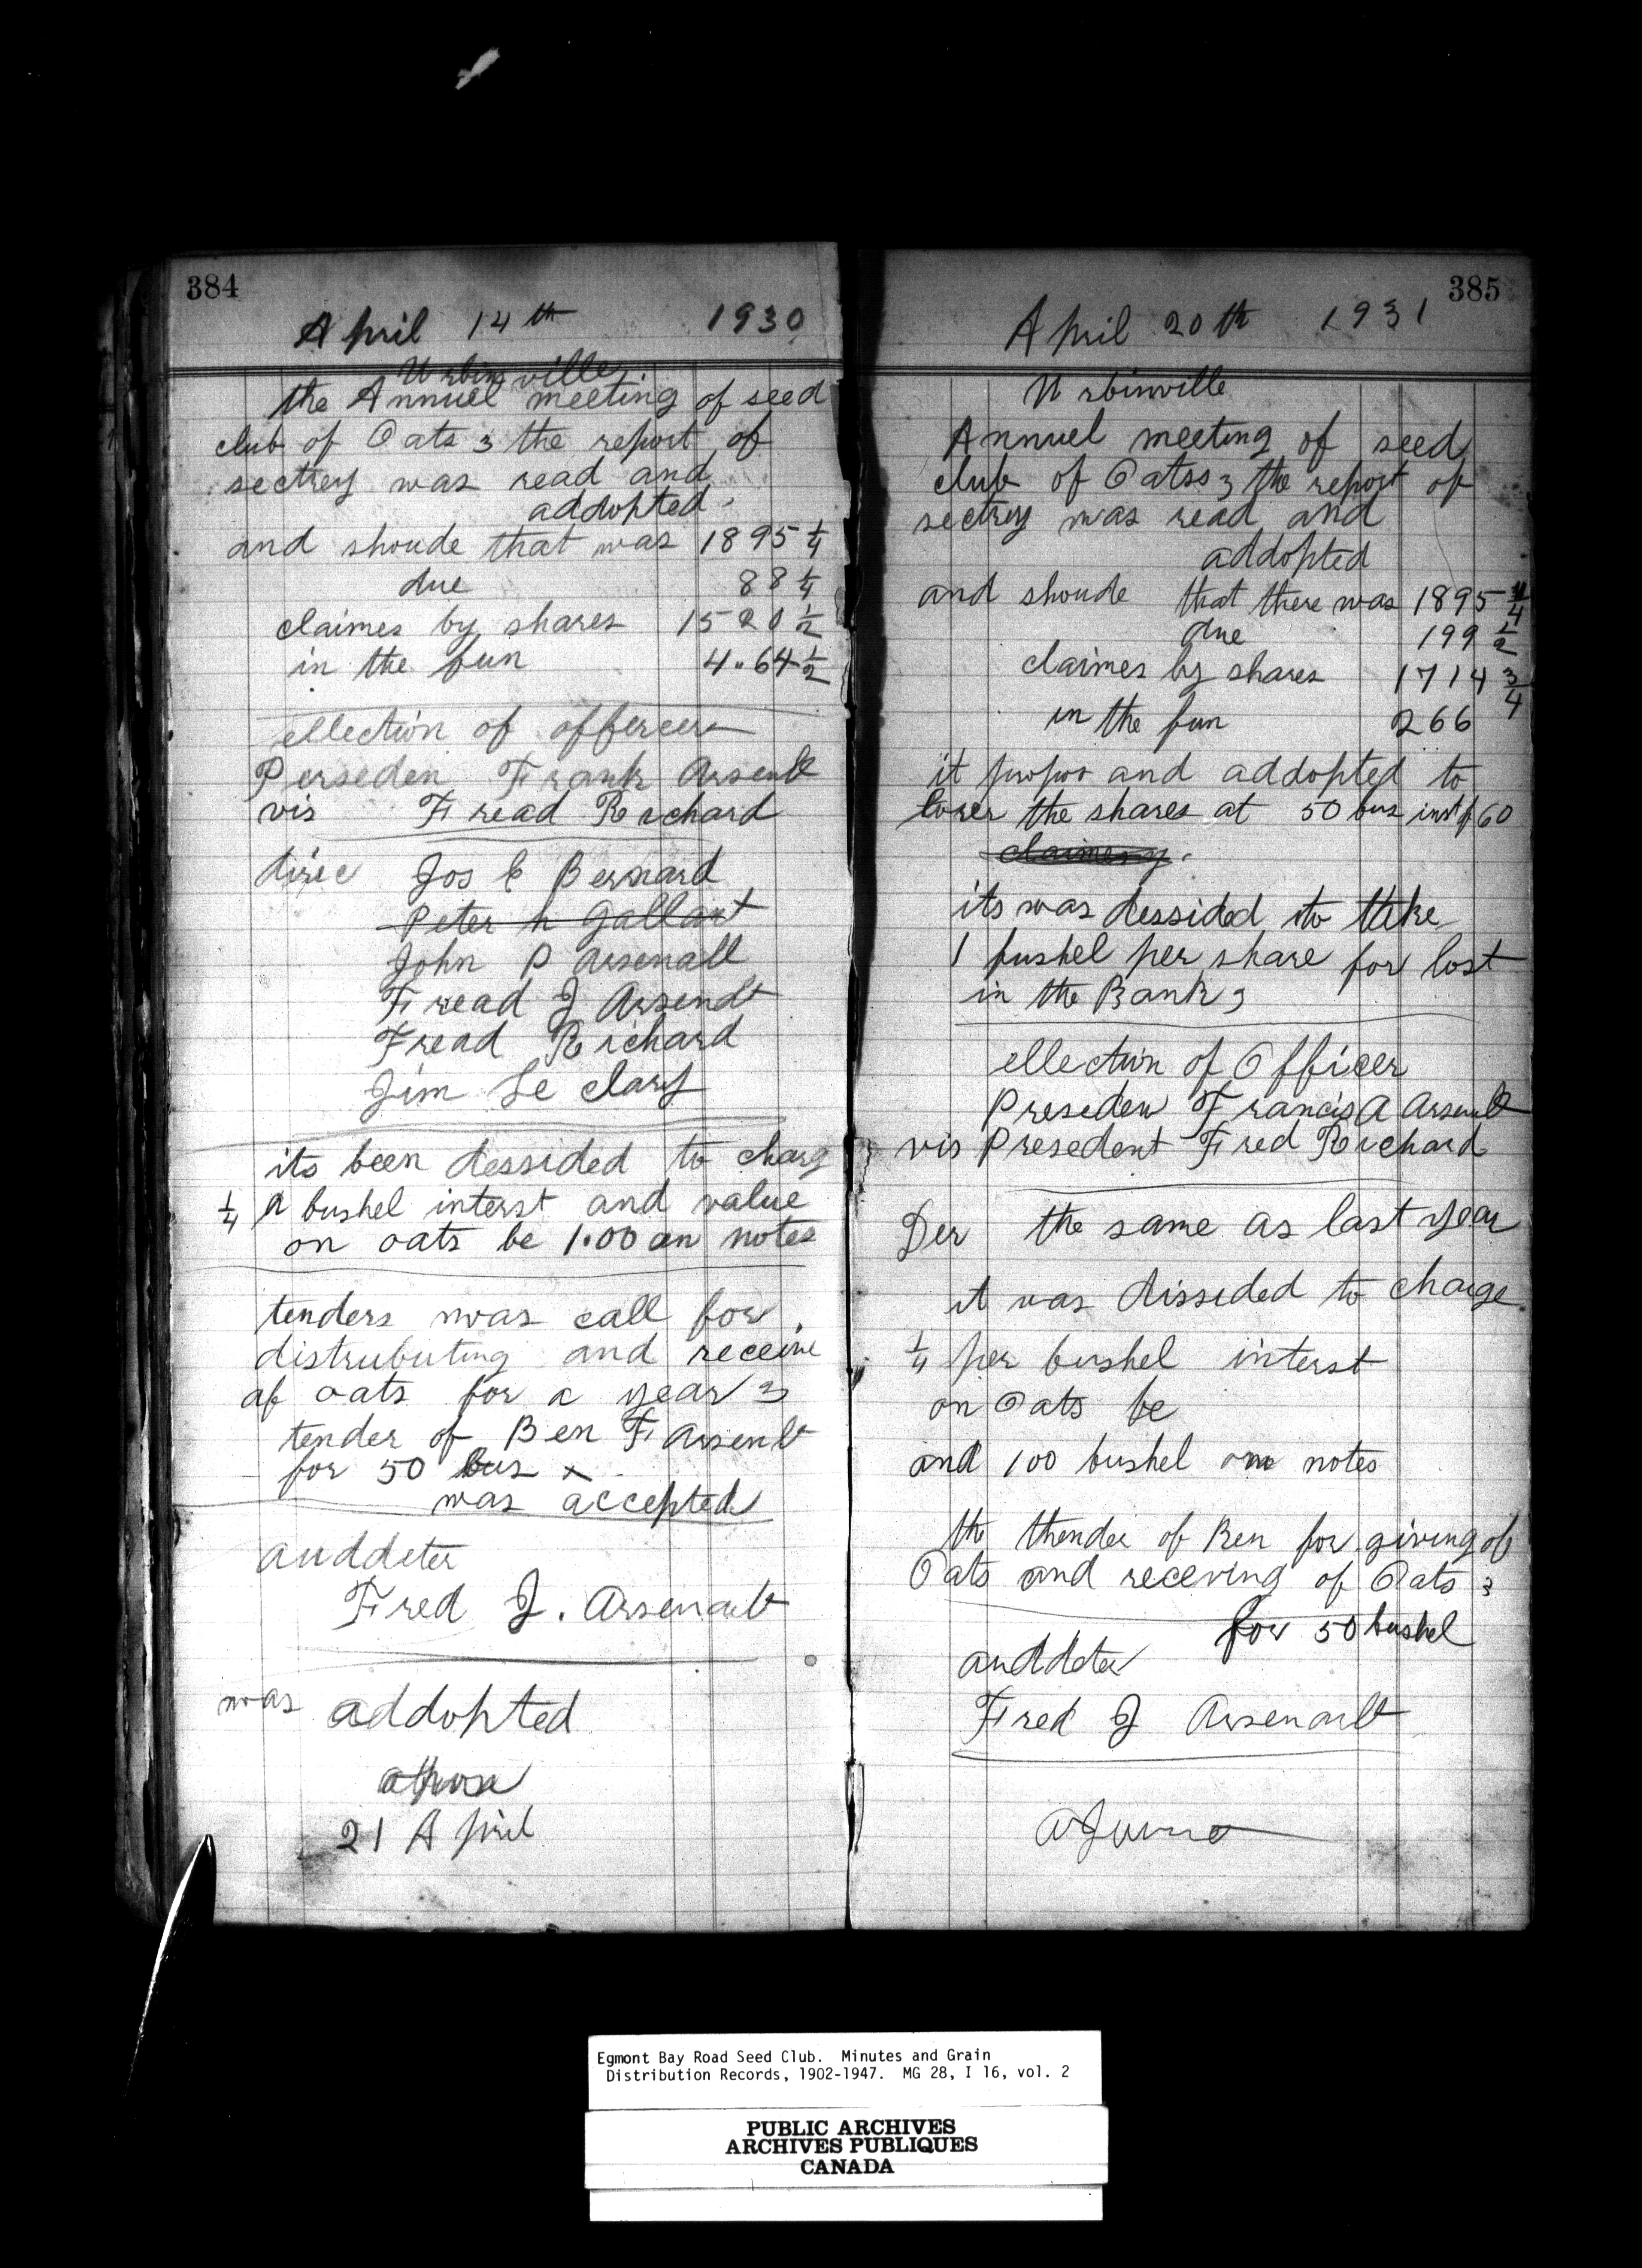 384
April 14th 1930
Urbinville
the Annuel meeting of seed
club of Oats 3 the report of
sectrey was read and
addopted.
and shoude that was 1895 1/4
due 88 1/4
claimes by shares 1520 1/2
in the fun 4.64 1/2
ellection of offercers
Perseden Frank Arsenlt
vis Fread Richard
direc Jos C Bernard
Peter h Gallant
John P Arsenalt
Fread J Arsenlt
Fread Richard
Jim Le clary
its been dessided to charg
1/4 A bushel interst and value
on oats be 1.00 on notes
tenders was call for
distrubuting and receeive
of oats for a year 3
tender of Ben F Arsenlt
for 50 bus x
was accepted
auddeter
Fred J. Arsenault
was addopted
21 April
385
April 20th 1931
Urbinville
Annuel meeting of seed
club of Oatss 3 the report of
sectrey was read and
addopted
and shoude that there was 1895 /4
due 199 1/2
claimes by shares 1714 3/4
in the fun 266
it propos and addopted to
lorer the shares at 50 bus inst of 60
its was dessided to take
1 bushel per share for lost
in the Bank 3
ellection of Officer
Preseden Francis A Arsenlt
vis Presedent Fred Richard
Der the same as last year
it was dissided to charge
1/4 per bushel interst
on Oats be
and 100 bushel on notes
the thender of Ben for giving of
Oats and receving of Oats 3
for 50 bushel
auddeter
Fred J Arsenault
Egmont Bay Road Seed Club. Minutes and Grain
Distribution Records, 1902-1947. MG 28, I 16, vol. 2
PUBLIC ARCHIVES
ARCHIVES PUBLIQUES
CANADA